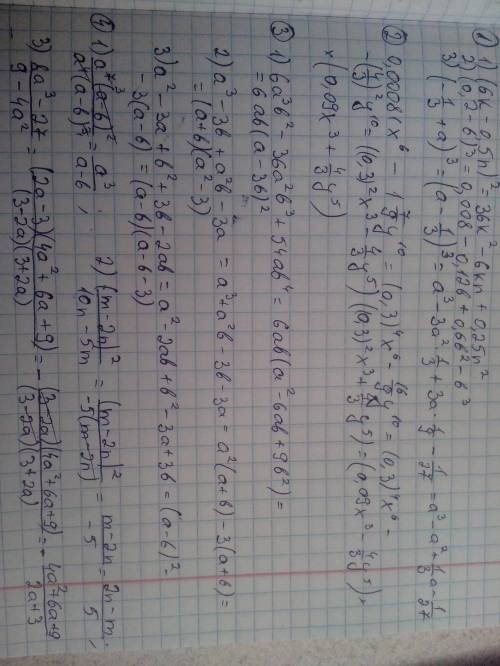 ① 1) (6k - 0,5n)² = 36k² - 6kn + 0,25n²
2) (0,2 - b)³ = 0,008 - 0,12b + 0,6b² - b³
3) (-1/3 + a)³ = (a - 1/3)³ = a³ - 3a² 1/3 + 3a · 1/9 - 1/27 = a³ - a² + 1/3 a - 1/27
② 0,0081x⁶ - 1 7/9 y¹⁰ = (0,3)⁴x⁶ - 16/9 y¹⁰ = (0,3)⁴x⁶ -
- (4/3)² y¹⁰ = ((0,3)²x³ - 4/3 y⁵)((0,3)²x³ + 4/3 y⁵) = (0,09x³ - 4/3 y⁵) ×
× (0,09x³ + 4/3 y⁵)
③ 1) 6a³b² - 36a²b³ + 54ab⁴ = 6ab(a² - 6ab + 9b²) =
= 6ab(a - 3b)²
2) a³ - 3b + a²b - 3a = a³ + a²b - 3b - 3a = a²(a+b) - 3(a+b) =
= (a+b)(a² - 3)
3) a² - 3a + b² + 3b - 2ab = a² - 2ab + b² - 3a + 3b = (a-b)² -
- 3(a-b) = (a-b)(a-b-3)
④ 1) a⁷(a-b)² / a⁴(a-b)³ = a³ / a-b ; 2) (m-2n)² / 10n-5m = (m-2n)² / -5(m-2n) = m-2n / -5 = 2n-m / 5 ;
3) 8a³ - 27 / 9 - 4a² = (2a-3)(4a²+6a+9) / (3-2a)(3+2a) = - (3-2a)(4a²+6a+9) / (3-2a)(3+2a) = - 4a²+6a+9 / 2a+3